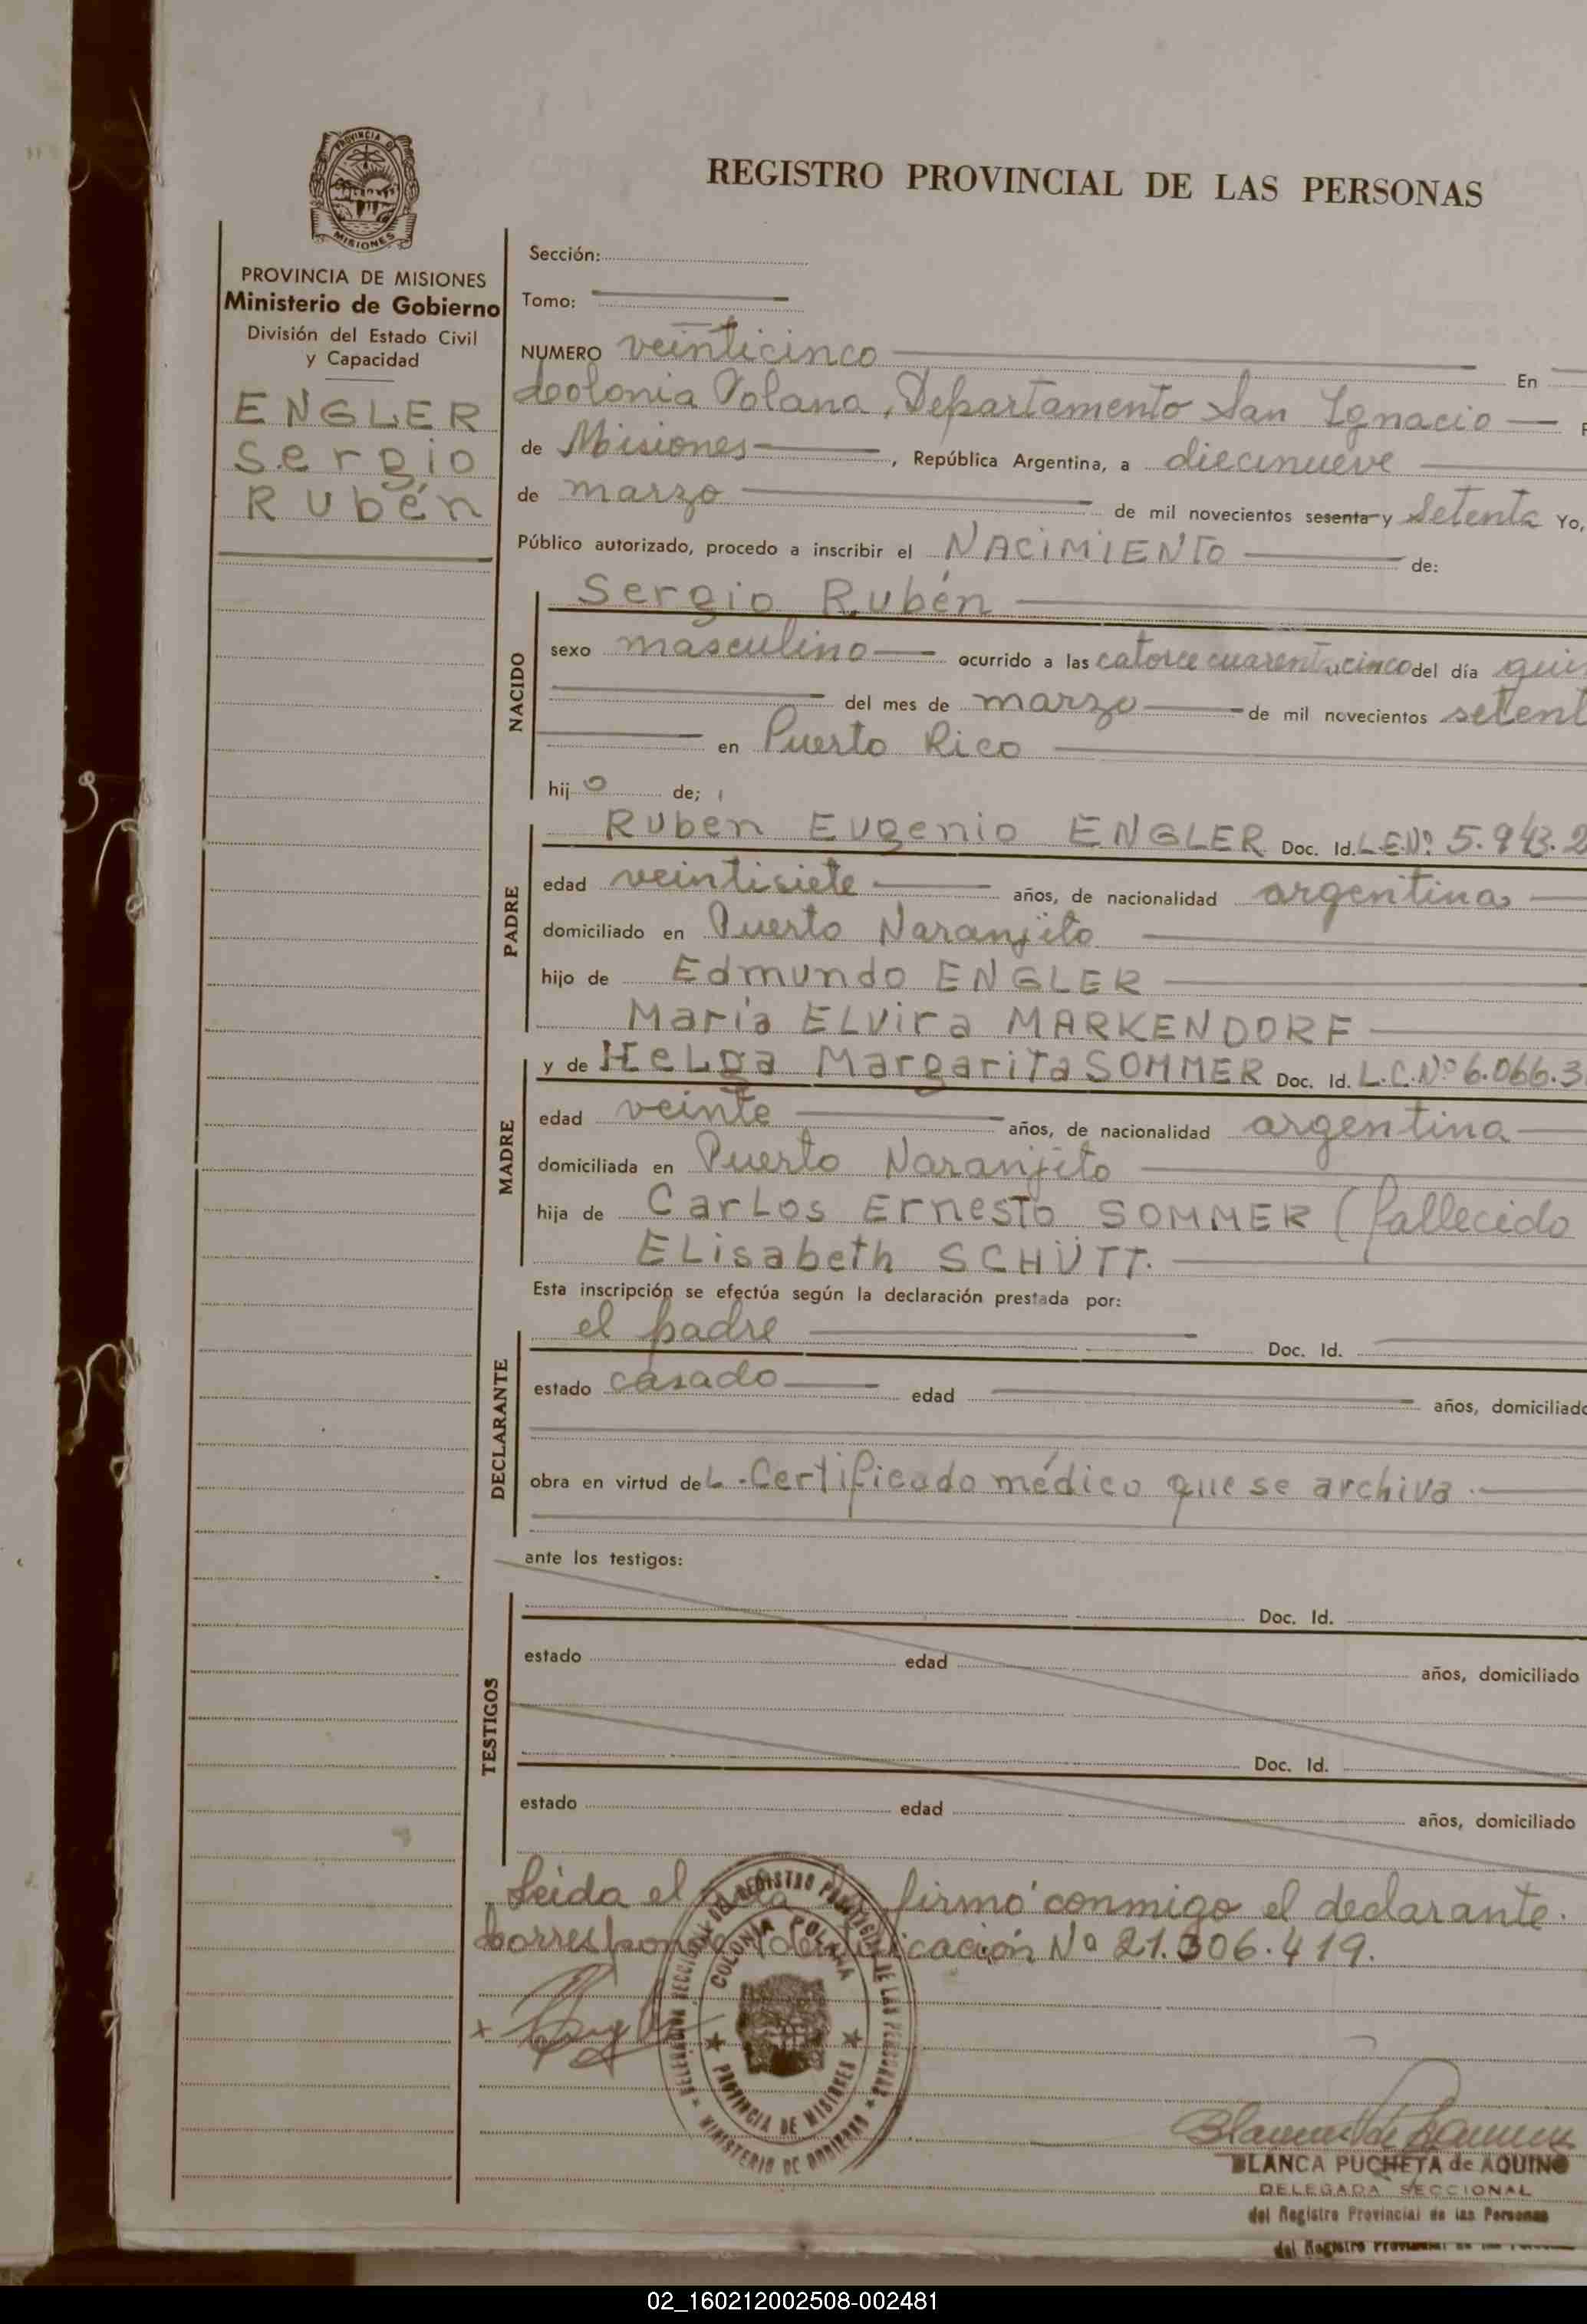 PROVINCIA DE
MISIONES
REGISTRO PROVINCIAL DE LAS PERSONAS
PROVINCIA DE MISIONES
Ministerio de Gobierno
División del Estado Civil
y Capacidad
ENGLER
Sergio
Rubén
Sección:
Tomo:
NUMERO veinticinco En
Colonia Polana, Departamento San Ignacio
de Misiones, República Argentina, a diecinueve
de marzo de mil novecientos sesenta y Setenta Yo,
Público autorizado, procedo a inscribir el NACIMIENTO de:
NACIDO
Sergio Rubén
sexo masculino ocurrido a las catorce cuarenta y cinco del día qui
del mes de marzo de mil novecientos setent
en Puerto Rico
hijo de;
PADRE
Ruben Eugenio ENGLER Doc. Id. L.E.Nº 5.943.2
edad veintisiete años, de nacionalidad argentina
domiciliado en Puerto Naranjito
hijo de Edmundo ENGLER
María ELvira MARKENDORF
MADRE
y de HeLga Margarita SOMMER Doc. Id. L.C.Nº 6.066.3
edad veinte años, de nacionalidad argentina
domiciliada en Puerto Naranjito
hija de CarLos Ernesto SOMMER (fallecido
ELisabeth SCHÜTT.
Esta inscripción se efectúa según la declaración prestada por:
DECLARANTE
el padre Doc. Id.
estado casado edad años, domiciliado
obra en virtud deL Certificado médico que se archiva.
ante los testigos:
TESTIGOS
Doc. Id.
estado edad años, domiciliado
Doc. Id.
estado edad años, domiciliado
Leida el firmó conmigo el declarante.
Corresponde Identificación Nº 21.306.419.
DELEGACION SECCIONAL DEL REGISTRO PROVINCIAL DE LAS PERSONAS
COLONIA POLANA
PROVINCIA DE MISIONES
MINISTERIO DE GOBIERNO
BLANCA PUCHETA de AQUINO
DELEGADA SECCIONAL
del Registro Provincial de las Personas
del Registro Provincial de las Personas
02_160212002508-002481